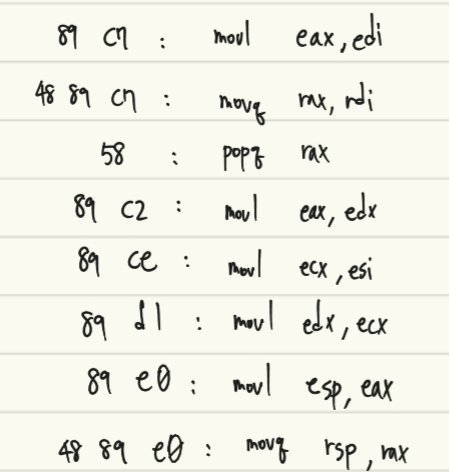 89 c7 : movl eax, edi
48 89 c7 : movq rax, rdi
58 : popq rax
89 c2 : movl eax, edx
89 ce : movl ecx, esi
89 d1 : movl edx, ecx
89 e0 : movl esp, eax
48 89 e0 : movq rsp, rax